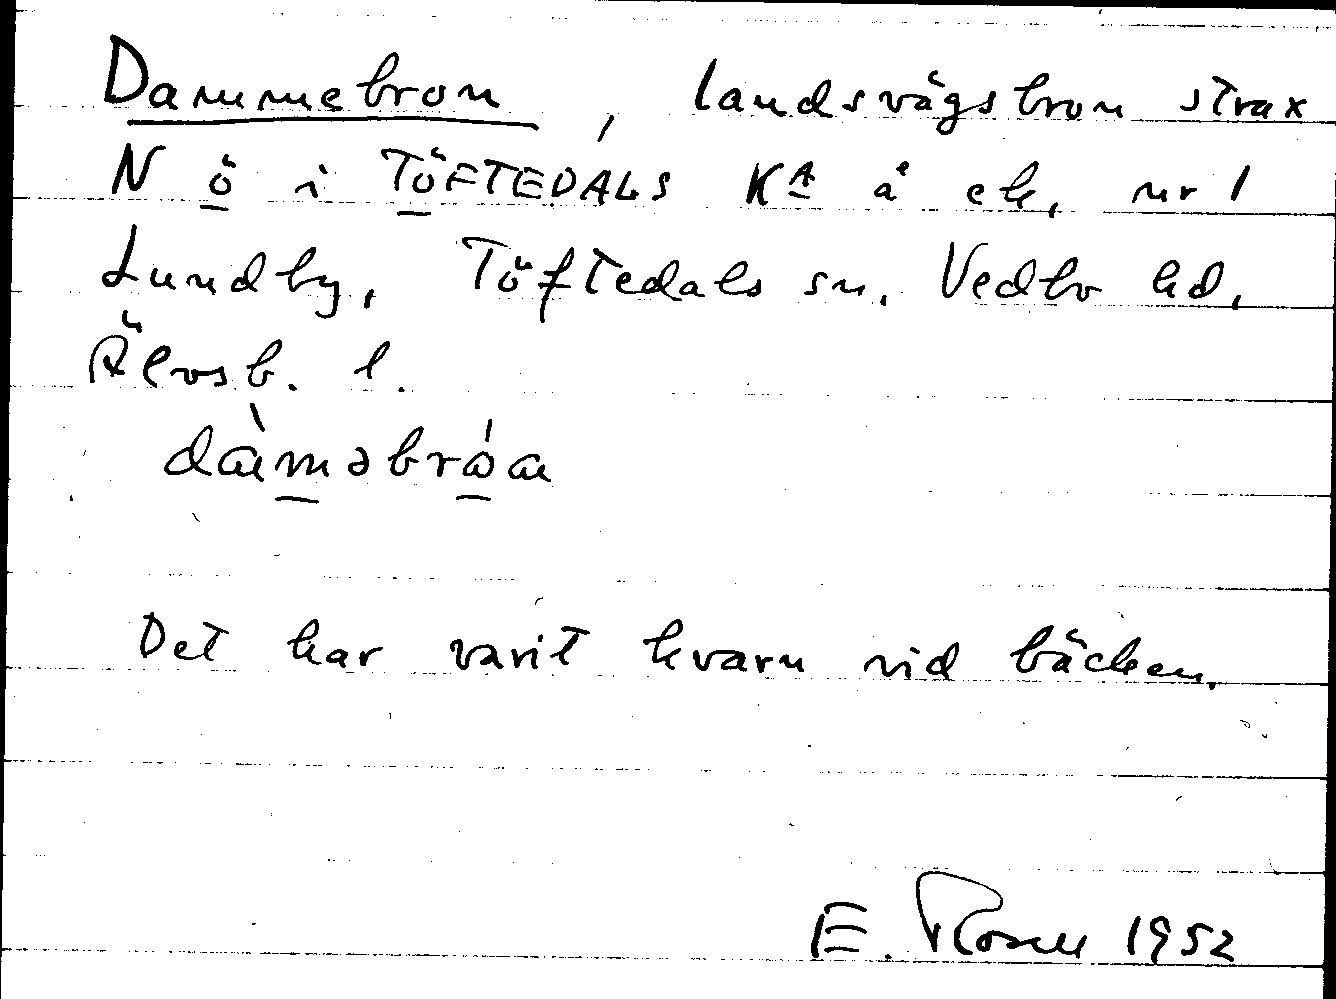 Dammebron, landsvägsbron strax
N ö i TÖFTEDALS KA å ek, nr 1
Lundby, Töftedals sn. Vedbo hd,
Älvsb. l.
Det har varit kvarn vid bäcken.
E. Rosell 1952